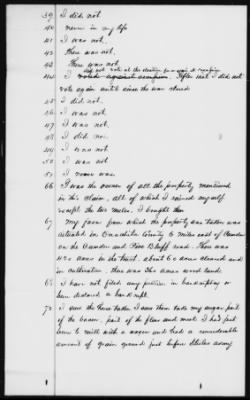 39 I did not.
40 never in my life
41 I was not.
42 There was not.
43 There was not.
44 I voted against secession. After that I did not
vote again until since the war closed
45 I did not.
46 I was not.
47 I was not.
48 I did not.
49 I was not
50 I was not
51 I never was.
66 I was the owner of all the property mentioned
in this claim, all of which I raised myself
except the two mules. I bought them
67 My farm from which the property was taken was
situated in Ouachita County 6 miles east of Camden
on the Camden and Pine Bluff road. There was
420 acres in the tract. about 60 acres cleared and
in cultivation. there was 360 acres wood land.
68 I have not filed any petition in bankruptcy or
been declared a bankrupt.
72 I saw them take my sugar part
of the bacon, part of the flour and meal. I had just
been to mill with a wagon and had a considerable
amount of grain ground just before Steeles army